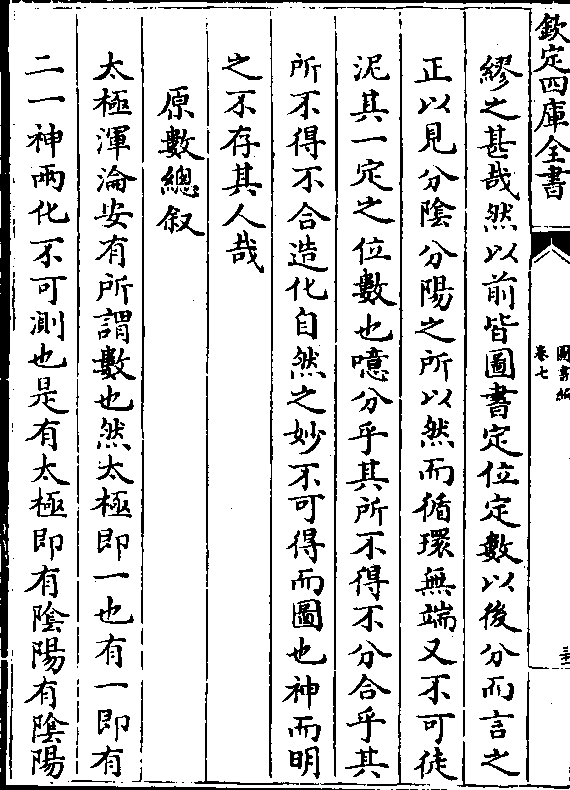 欽定四庫全書
圖書編
卷七
繆之甚哉然以前皆圖書定位定數以後分而言之
正以見分陰分陽之所以然而循環無端又不可徒
泥其一定之位數也噫分乎其所不得不分合乎其
所不得不合造化自然之妙不可得而圖也神而明
之不存其人哉
原數總叙
太極渾淪安有所謂數也然太極即一也有一即有
二一神兩化不可測也是有太極即有陰陽有陰陽